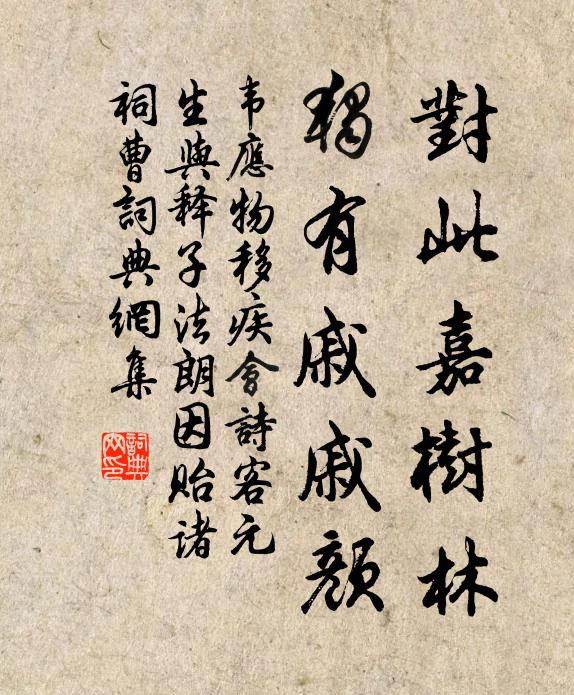 對此嘉樹林
獨有戚戚顏
韦應物移疾會詩客元
生與释子法朗因贻诸
祠曹詞典網集
詞典
网印